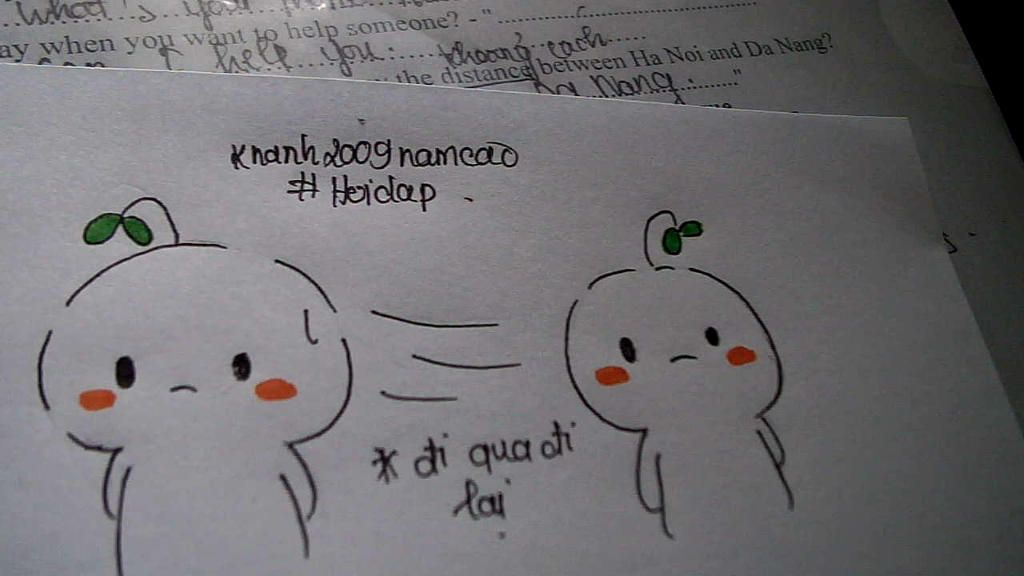 What's your
ay when you want to help someone? - "
I help you khoảng cách
the distance between Ha Noi and Da Nang?
Da Nang "
Khanh2009namcao
# Hoidap
* đi qua đi
lại